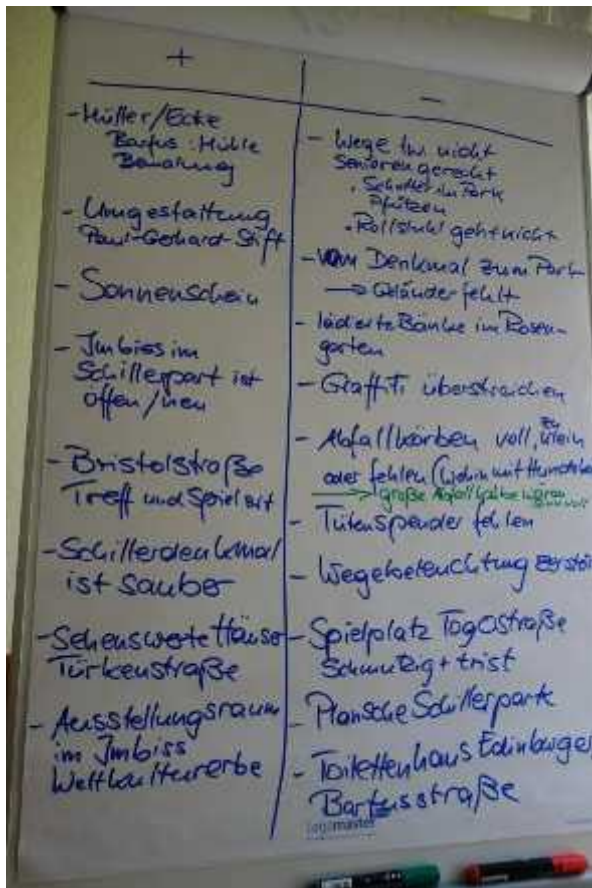 +
- Müller/Ecke
Barfus
- Umgestaltung
Paul-Gerhard-Stift
- Sonnenschein
- Imbiss im
Schillerpark ist
offen/neu
- Bristolstraße
Treff und Spielort
- Schillerdenkmal
ist sauber
- Sehenswerte Häuser
Türkenstraße
- Ausstellungsraum
im Imbiss
Weltkulturerbe
-
- Wege tw. nicht
Seniorengerecht
• Schotter im Park
Pfützen
• Rollstuhl geht nicht
- Vom Denkmal zum Park
→ Geländer fehlt
- lädierte Bänke im Rosen-
garten
- Graffiti überstreichen
- Abfallkörben voll, zu klein
oder fehlen (Wohin mit
→ große Abfallkörbe wären
- Tütenspender fehlen
- Wegebeleuchtung zerstör
- Spielplatz Togostraße
Schmutzig + trist
- Plansche Schillerpark
- Toilettenhaus Edinburger
Barfusstraße
legamaster